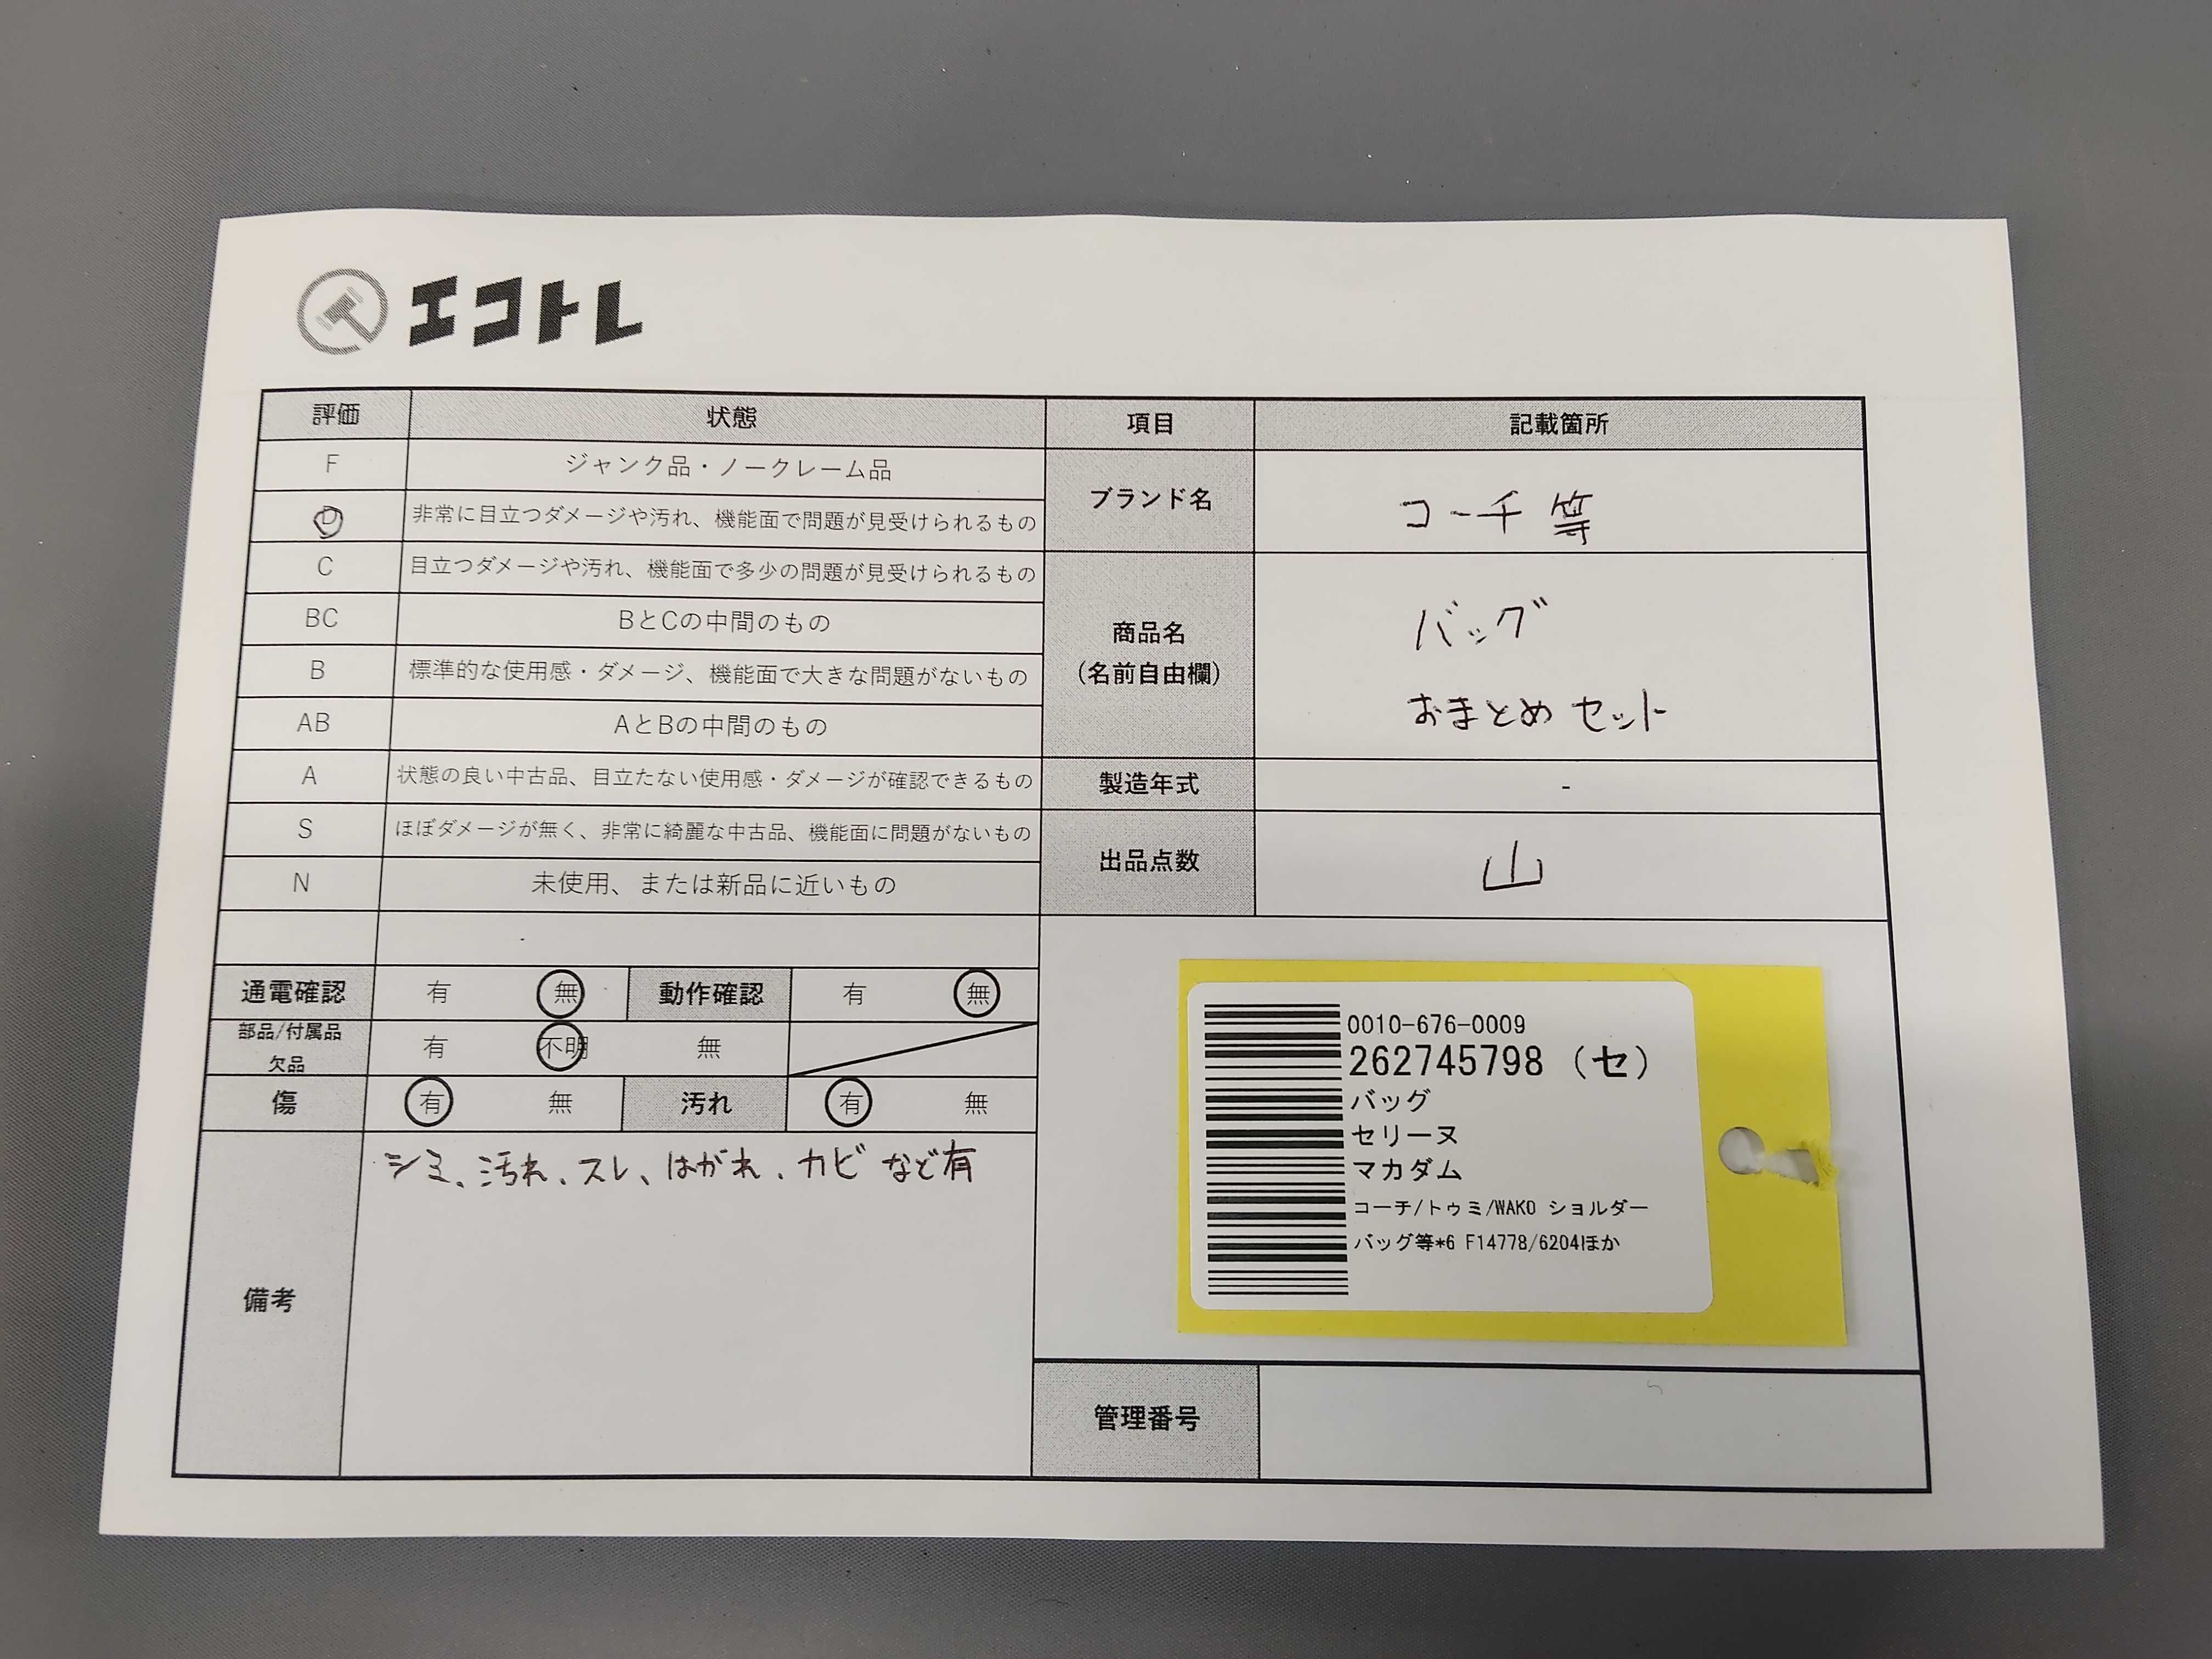 エコトレ
評価 状態 項目 記載箇所
F ジャンク品・ノークレーム品
D 非常に目立つダメージや汚れ、機能面で問題が見受けられるもの
ブランド名 コーチ 等
C 目立つダメージや汚れ、機能面で多少の問題が見受けられるもの
BC BとCの中間のもの
B 標準的な使用感・ダメージ、機能面で大きな問題がないもの
AB AとBの中間のもの
商品名
(名前自由欄)
バッグ
おまとめ セット
A 状態の良い中古品、目立たない使用感・ダメージが確認できるもの
製造年式 -
S ほぼダメージが無く、非常に綺麗な中古品、機能面に問題がないもの
N 未使用、または新品に近いもの
出品点数 山
-
通電確認 有 無 動作確認 有 無
部品/付属品
欠品
有 不明 無
傷 有 無 汚れ 有 無
備考
シミ、汚れ、スレ、はがれ、カビ など有
0010-676-0009
262745798 (セ)
バッグ
セリーヌ
マカダム
コーチ/トゥミ/WAKO ショルダー
バッグ等*6 F14778/6204ほか
管理番号